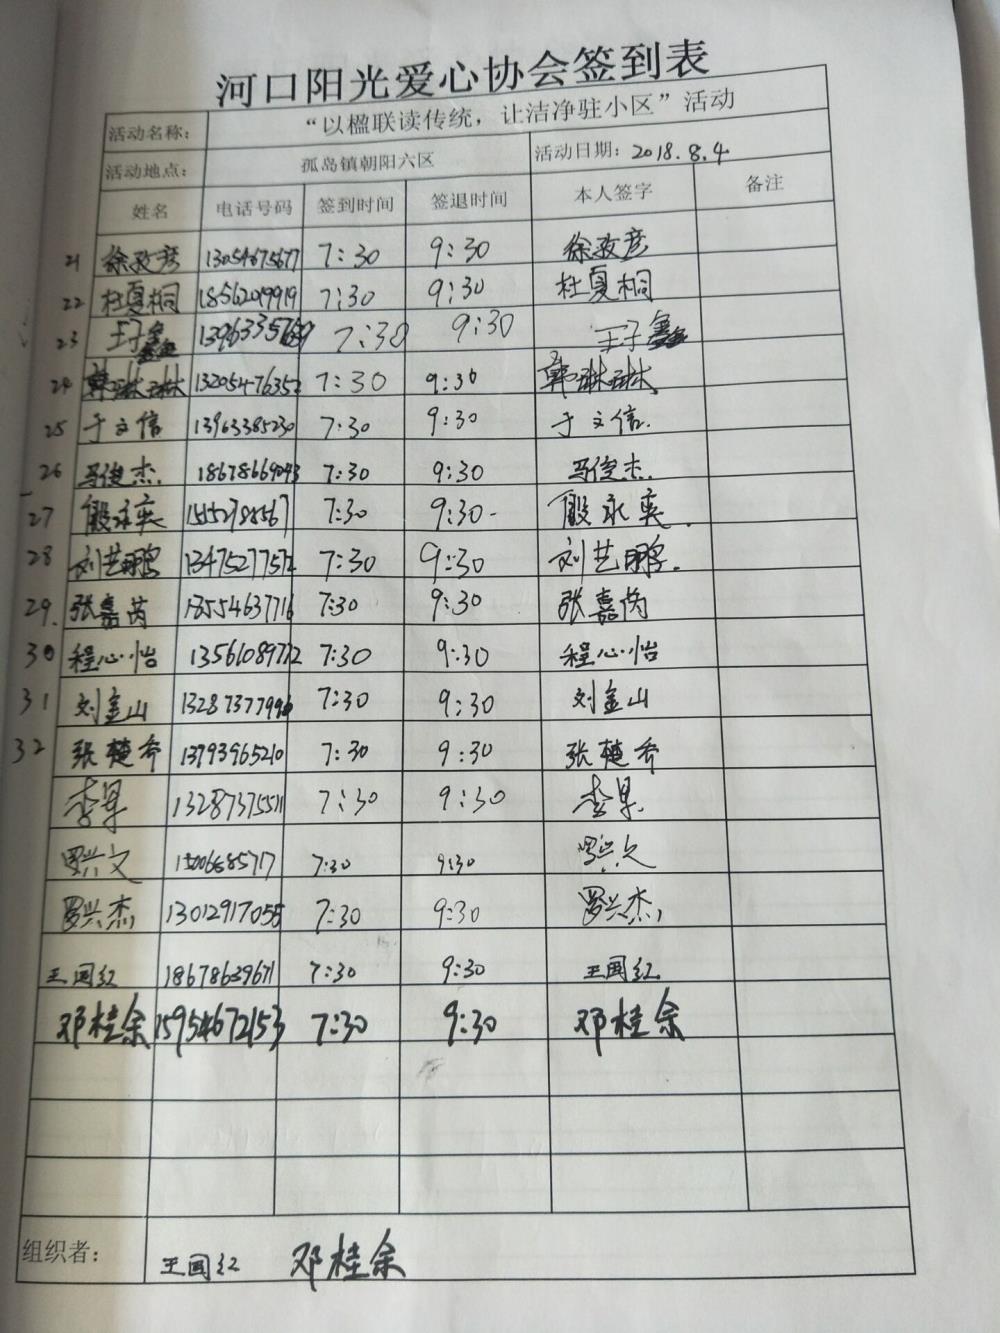 河口阳光爱心协会签到表
活动名称： “以楹联读传统，让洁净驻小区”活动
活动地点： 孤岛镇朝阳六区 活动日期：2018.8.4
姓名 电话号码 签到时间 签退时间 本人签字 备注
21 徐孜彦 13054675677 7:30 9:30 徐孜彦
22 杜夏桐 18562019919 7:30 9:30 杜夏桐
23 王子鑫 7:30 9:30 王子鑫
24 韩琳琳 13205476352 7:30 9:30 韩琳琳
25 于文信 13963385230 7:30 9:30 于文信.
26 马俊杰. 18678669093 7:30 9:30 马俊杰.
27 殷永奕 15552798567 7:30 9:30- 殷永奕.
28 刘艺鹏 13475277572 7:30 9:30 刘艺鹏.
29. 张嘉芮 18554637716 7:30 9:30 张嘉芮
30 程心怡 13561089772 7:30 9:30 程心怡
31 刘金山 13287377996 7:30 9:30 刘金山
32 张楚乔 13793965210 7:30 9:30 张楚乔
李果 13287375511 7:30 9:30 李果
罗兴文 7:30 9:30 罗兴文
罗兴杰 13012917055 7:30 9:30 罗兴杰
王国红 18678639671 7:30 9:30 王国红
邓桂余 15954672153 7:30 9:30 邓桂余
组织者： 王国红 邓桂余